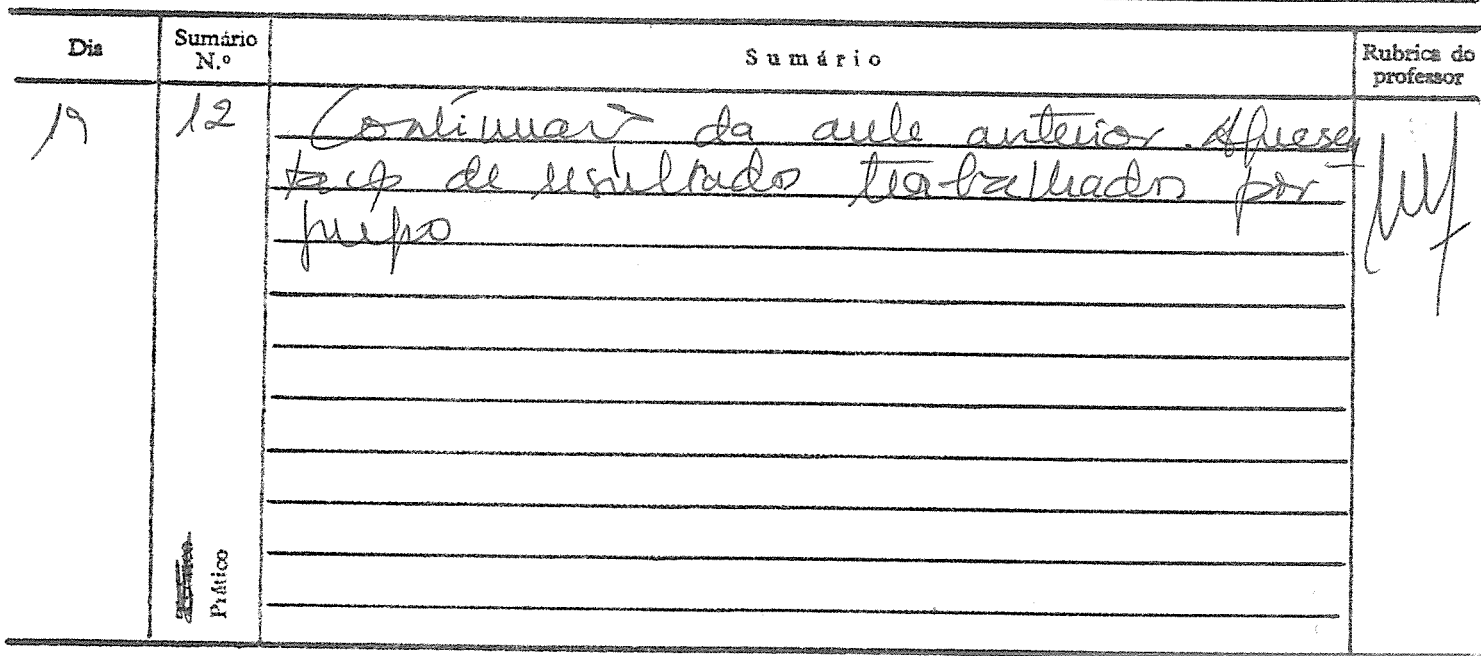 Dia
Sumário N.º
Sumário
Rubrica do professor
19
12
Continuação da aula anterior. Apresen
tação de resultados trabalhados por
grupo
Prático